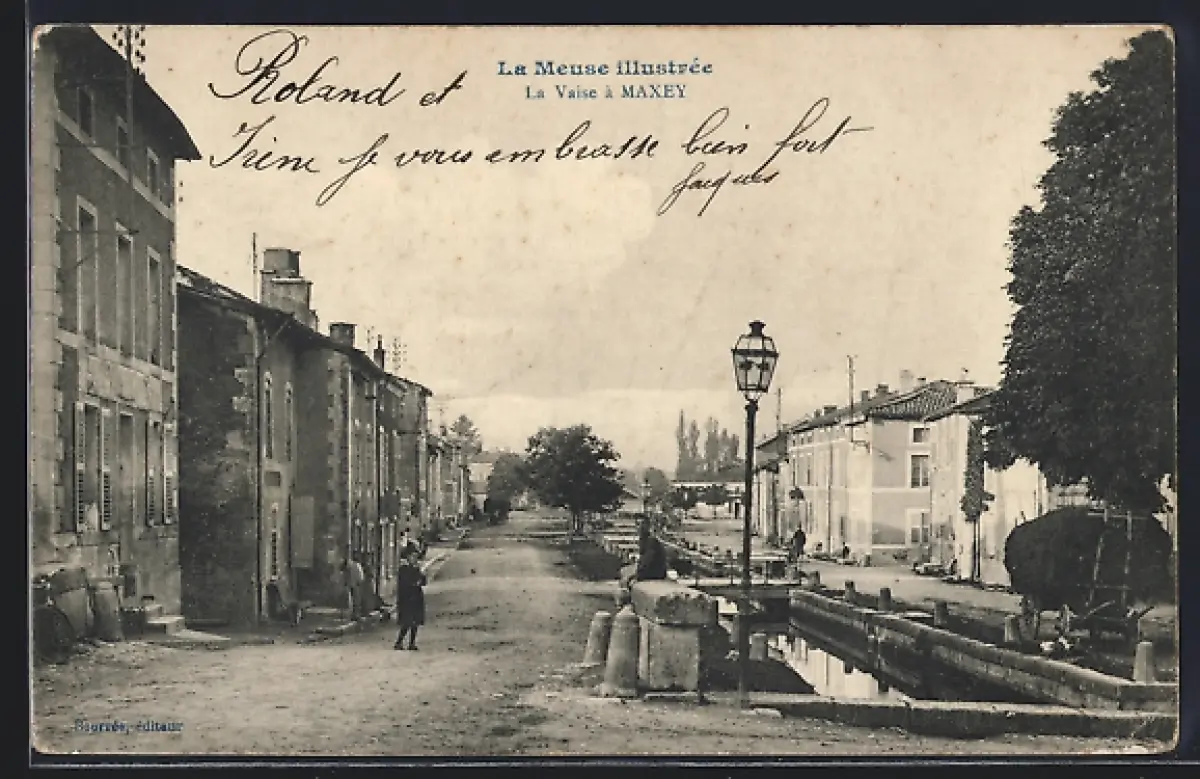 La Meuse illustrée
La Vaise à MAXEY
Roland et
Irène je vous embrasse bien fort
Jacques
éditeur